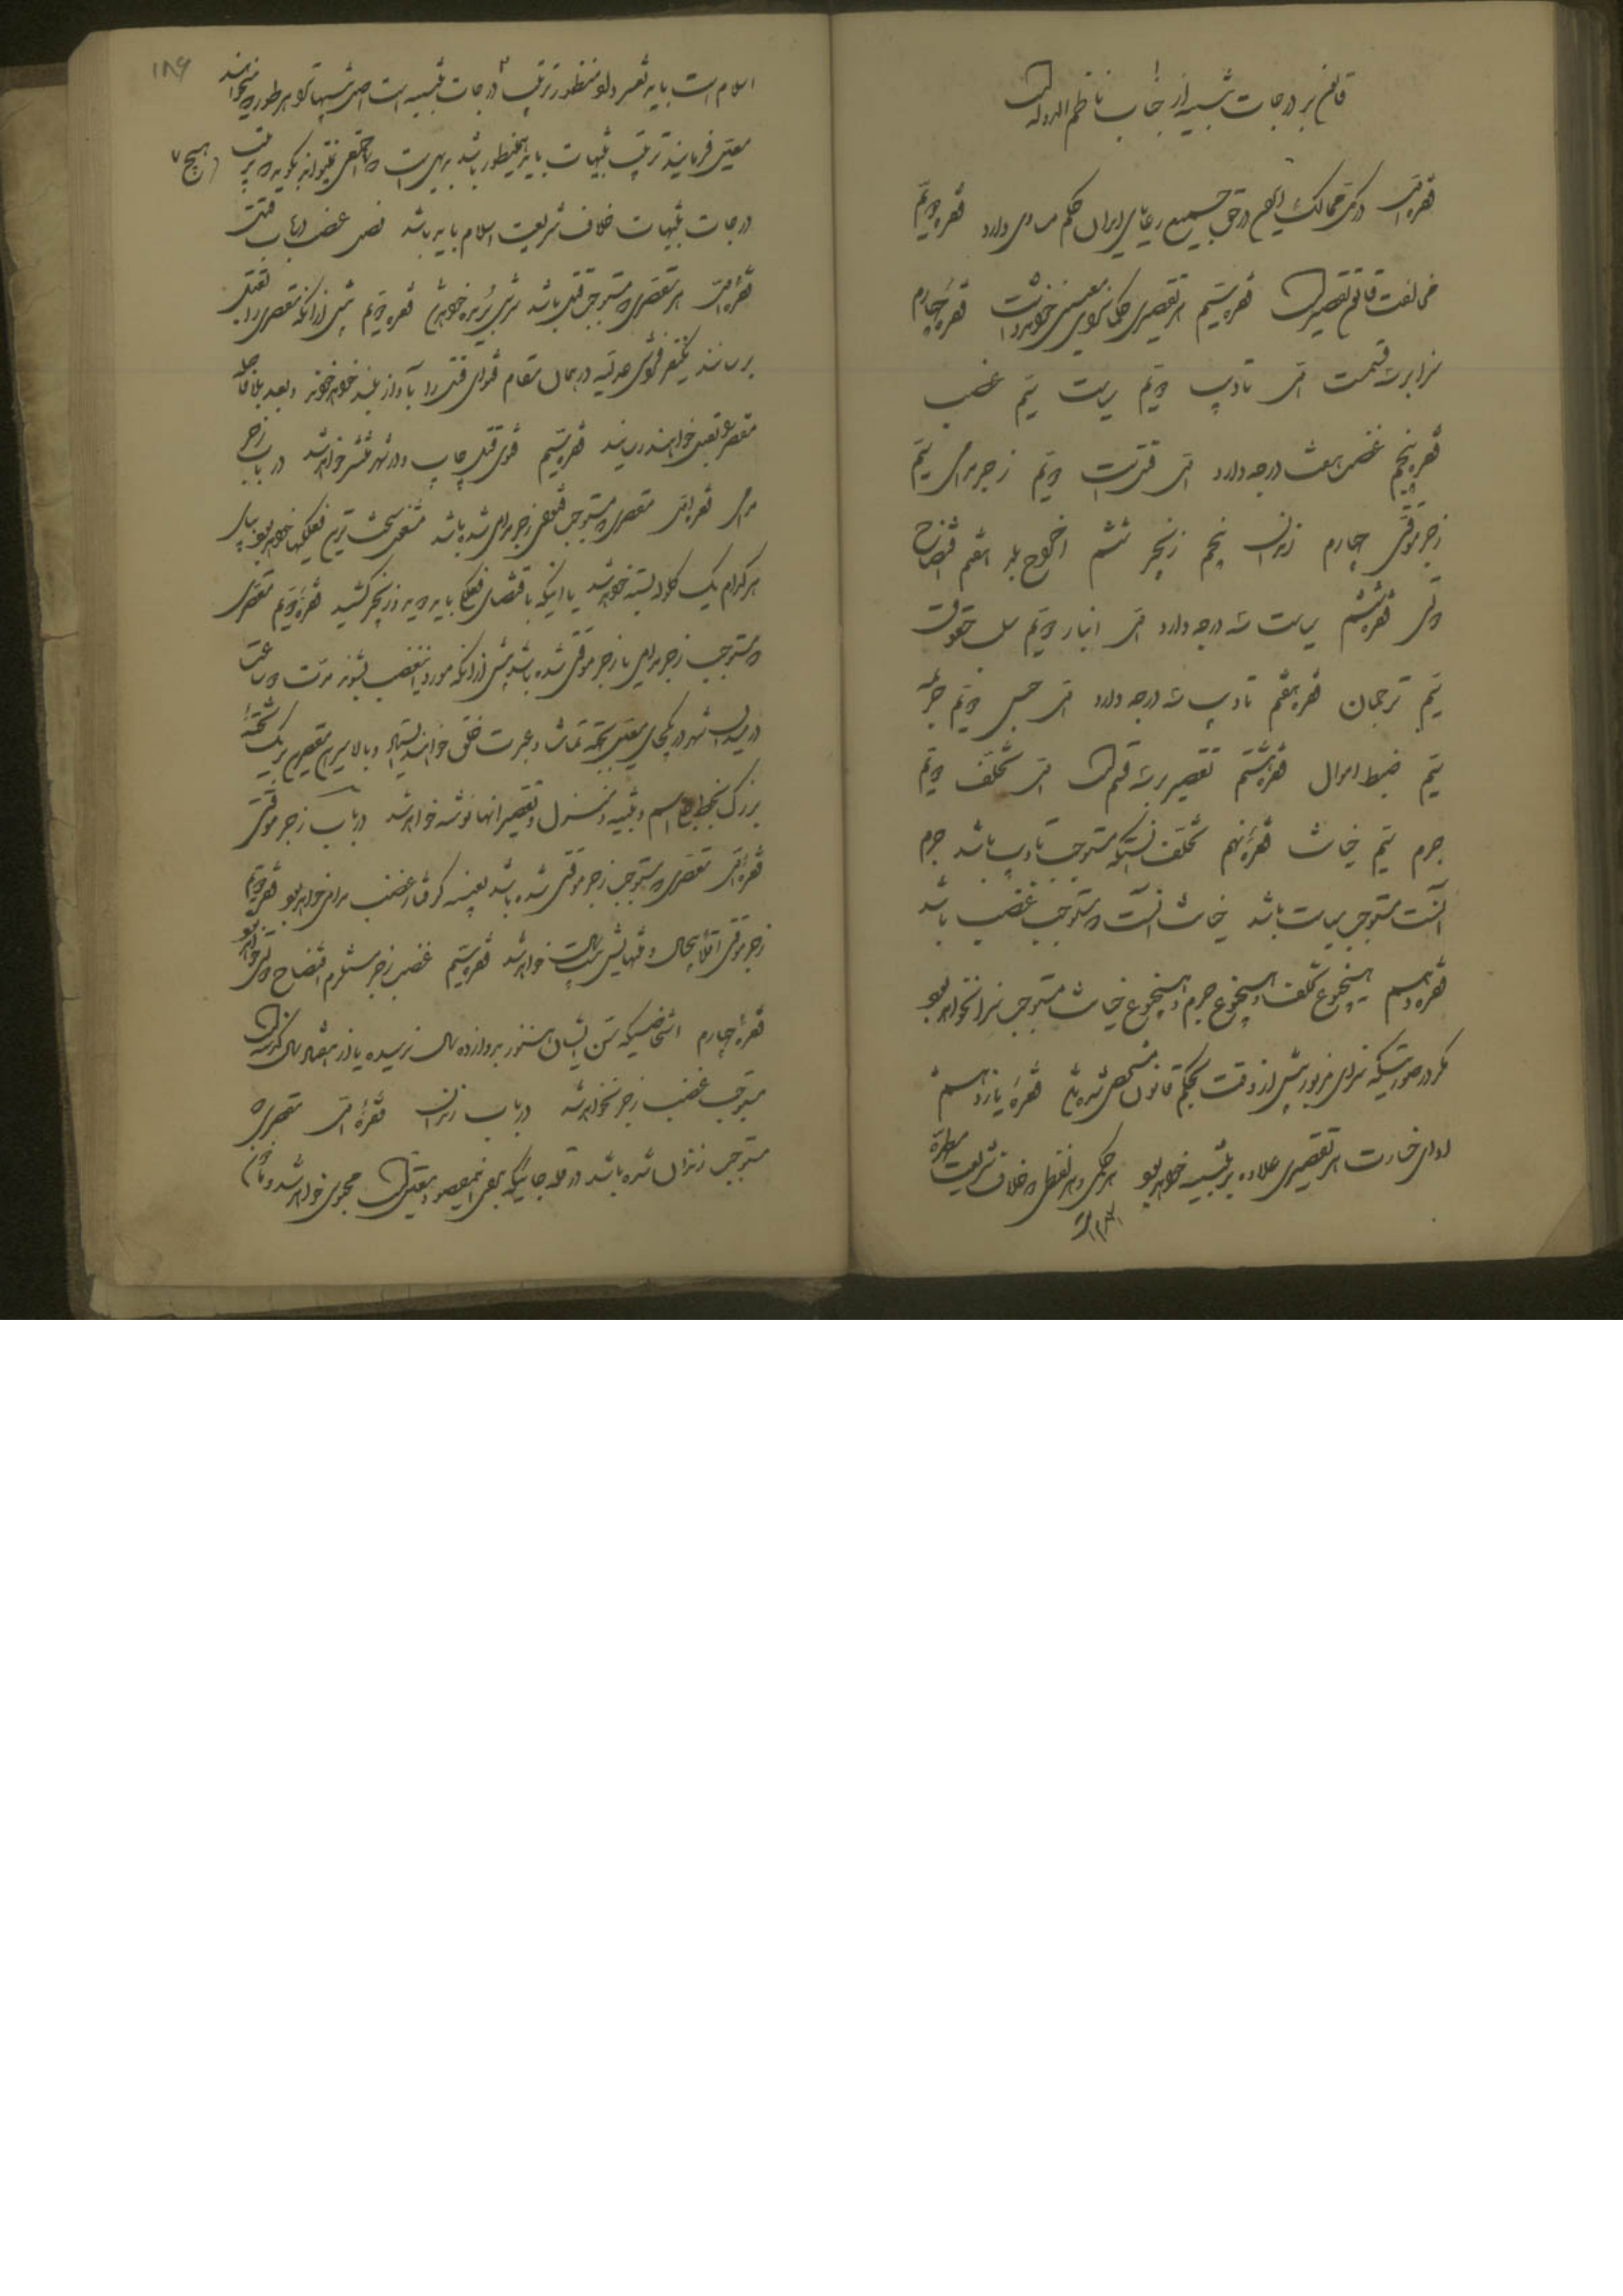 قانون بر درجات تنبیه از جناب ناظم الدوله است
فقره اول در کل ممالک ایران در حق جمیع رعایای ایران حکم مساوی دارد فقره دویم
مخالفت قانون تقصیر است فقره سیم هر تقصیری حکماً سزای معینی خواهد داشت فقره چهارم
سزا بر سه قسمت اول تادیب دویم سیاست سیم غضب
فقره پنجم غضب هشت درجه دارد اول قتل است دویم زجر مدامی سیم
زجر موقتی چهارم زندان پنجم زنجیر ششم اخراج بلد هفتم افتضاح
فقره ششم سیاست سه درجه دارد اول انبار دویم سلب حقوق
سیم ترجمان فقره هفتم تادیب سه درجه دارد اول حبس دویم جریمه
سیم ضبط اموال فقره هشتم تقصیر بر سه قسم است اول تخلف دویم
جرم سیم خیانت فقره نهم تخلف آنست که مستوجب تادیب باشد جرم
آنست مستوجب سیاست باشد خیانت آنست که مستوجب غضب باشد
فقره دهم هیچ نوع تخلف و هیچ نوع جرم و هیچ نوع خیانت مستوجب سزا نخواهد بود
مگر در صورتیکه سزای مزبور پیش از وقت بحکم قانون مشخص شده باشد فقره یازدهم
ادای خسارت هر تقصیری علاوه بر تنبیه خواهد بود هر حکمی و هر لفظی که خلاف شریعت مطهره
۱۸۶
اسلام است باید تغییر داد و منظور ترتیب درجات تنبیه است اصل تنبیهات را هر طور که میخواهند
معین فرمایند ترتیب تنبیهات باید همینطور باشد بدیهی است که هیچ احمقی نمیتواند بگوید که ترتیب
درجات تنبیهات خلاف شریعت اسلام باید باشد فصل غضب در باب قتل
فقره اول هر مقصری که مستوجب قتل باشد سرش بریده خواهد شد فقره دویم پیش از آنکه مقصر را بقتل
برسانند یکنفر فراش عدلیه در همان مقام فتوای قتل را بآواز بلند خواهد خواند و بعد بلافاصله
مقصر را بقتل خواهند رسانید فقره سیم فتوای قتل چاپ و در شهر منتشر خواهد شد در باب زجر
مدامی فقره اول مقصری که مستوجب غضب زجر مدامی شده باشد مشغول سخت ترین فعلگیها خواهد بود بپای
هر کدام یک گلوله بسته خواهد شد یا اینکه باقتضای فعلگی باید دو بدو زنجیر کشید فقره دویم مقصری
که مستوجب زجر مدامی یا زجر موقتی شده باشد پیش از آنکه مورد این غضب بشود مدت دو ساعت
در میدان شهر در یکجای معین بجهة تماشا و عبرت خلق خواهند ایستاد و بالای سر این مقصرین بر یک تخته
بزرگ بخط واضح اسم و تنبیه و منزل و تقصیر آنها نوشته خواهد شد در باب زجر موقتی
فقره اول مقصری که مستوجب زجر موقتی شده باشد بعینه گرفتار غضب مدامی خواهد بود فقره دویم
زجر موقتی اقلاً پنجسال و منتهایش بیست سال خواهد شد فقره سیم غضب زجر مستلزم افتضاح کلی خواهد بود
فقره چهارم اشخاصیکه سن ایشان هنوز بدوازده سال نرسیده یا از هفتاد سال گذشته است
مستوجب غضب زجر نخواهد شد در باب زندان فقره اول مقصری که
مستوجب زندان شده باشد در قلعه جائیکه بعض این مقصود معین است محبوس خواهد شد